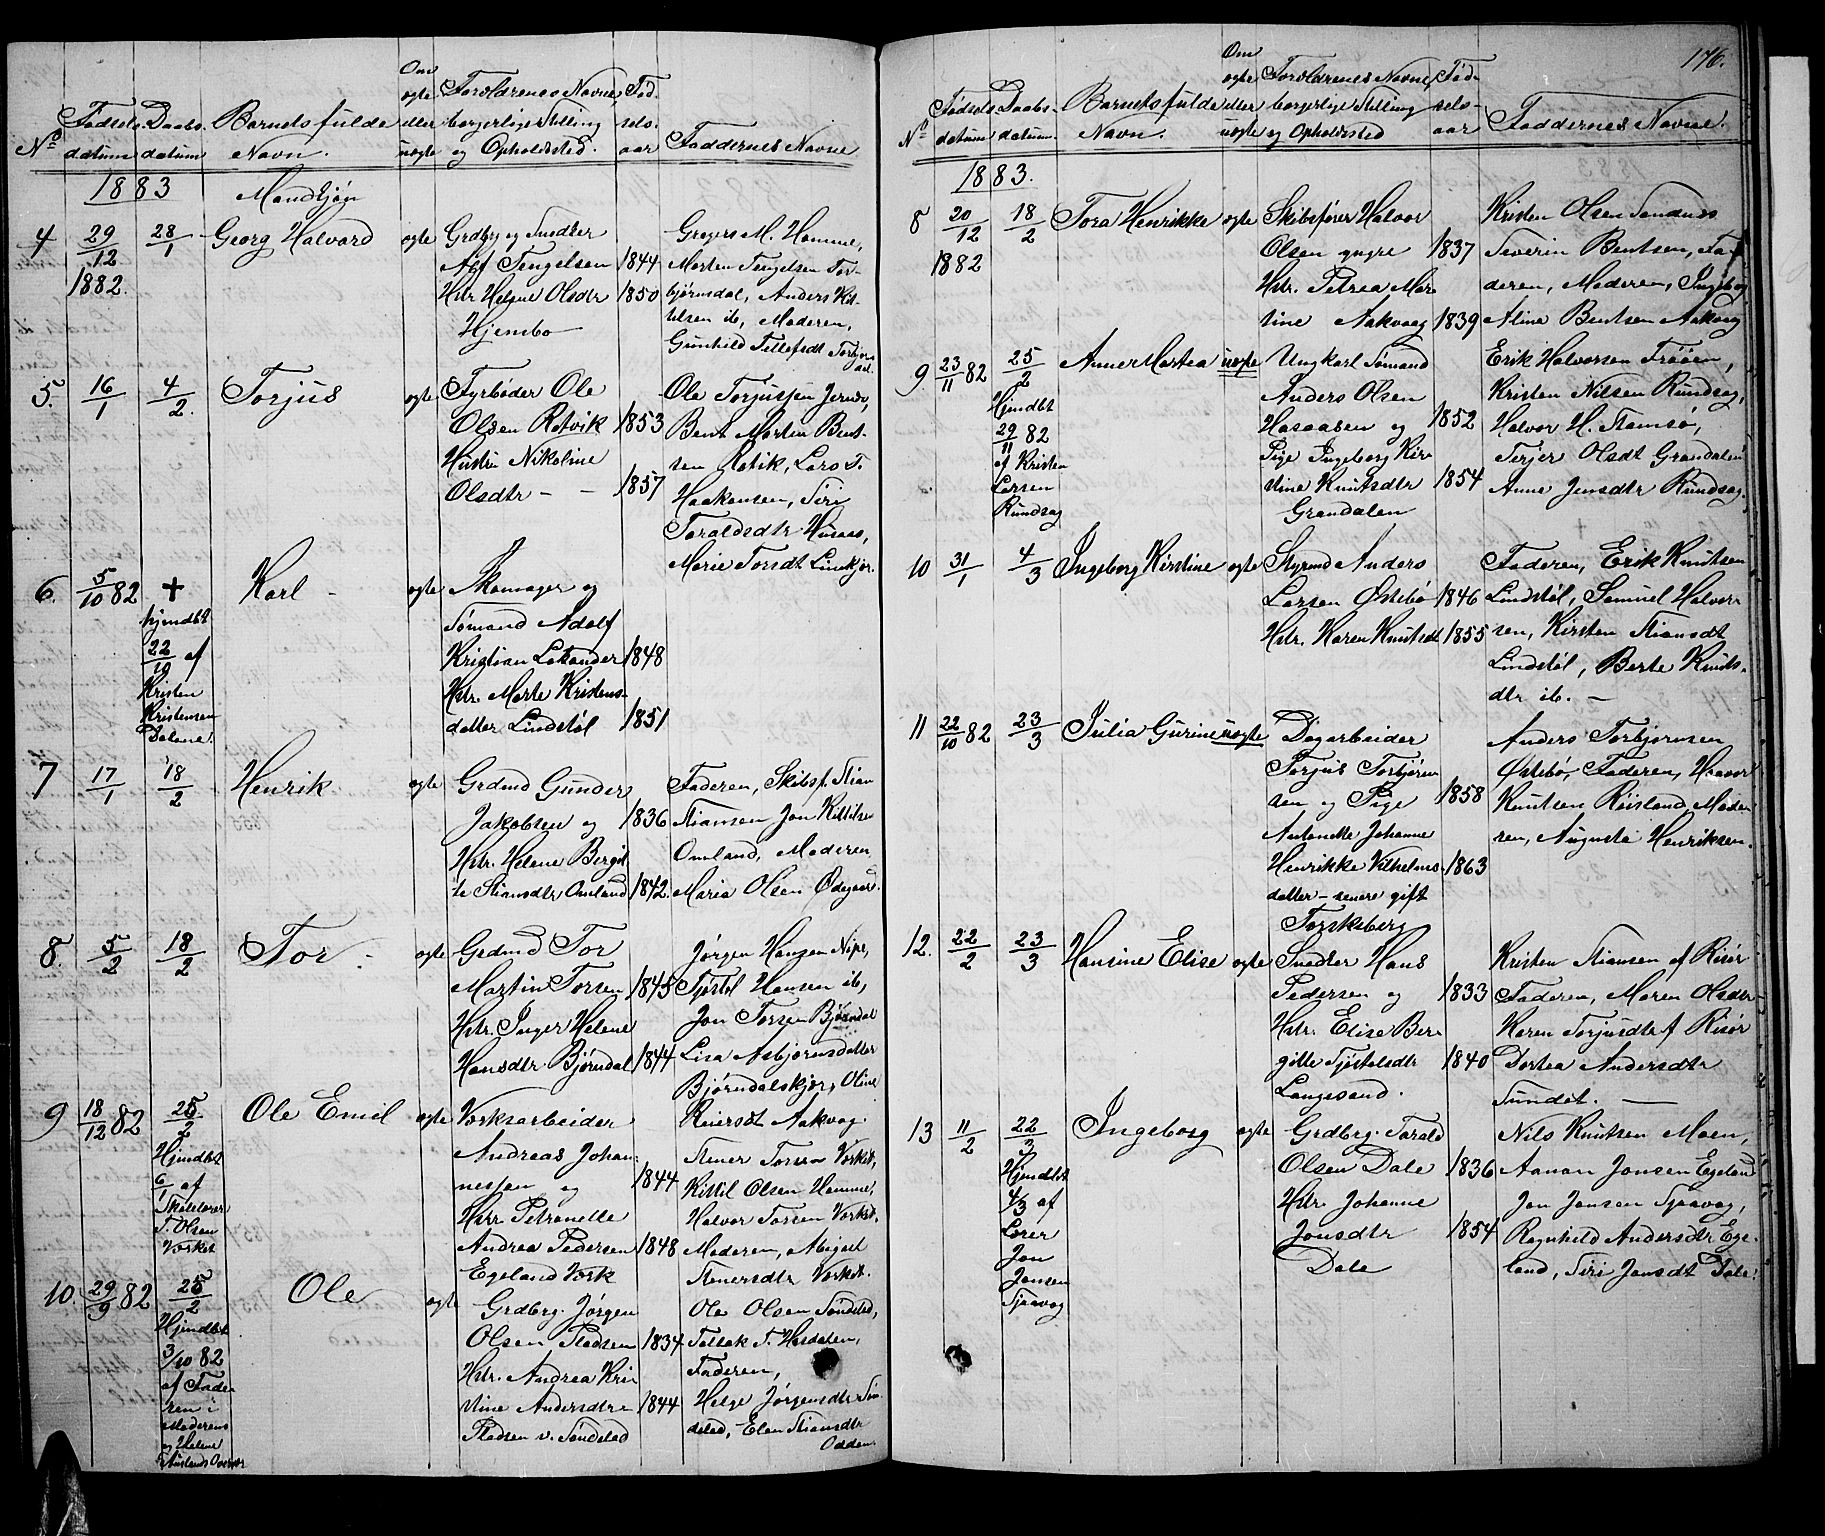 Nº
Fødsels-
datum
Daabs-
datum
Barnets fulde
Navn.
Om
ægte
eller
uægte
Forældrenes Navne
borgerlige Stilling
og Opholdssted.
Fød-
sels-
aar
Faddernes Navne
1883
Mandkjøn
4
29/12
1882.
28/1
Georg Halvard
ægte
Grdbr. og Snedker
Alf Tengelsen 1844
Hstr. Helene Olsdtr 1850
Hjembo
Gregers M. Homme,
Morten Tengelsen Tor-
bjørnsdal, Anders Kit-
telsen ib, Moderen,
Gunhild Tellefsdt Torbjørnsdal.
5.
16/1
4/2.
Torjus
ægte
Fyrbøder Ole
Olsen Rotvik 1853
Hustru Nikoline
Olsdtr - - 1857
Ole Torjussen Jernæs,
Bent Morten Bent-
sen Rotvik, Lars T.
Haakensen, Siri
Toraldsdtr Husaas,
Marie Torsdt Linkjær.
6.
5/10 82
+
hjemdbt
22/10 af
Kristen
Kristensen
Dalene.
Karl -
ægte
Skomager og
Sømand Adolf
Kristian Lokander 1848
Hstr. Marte Kristens-
datter Lindstøl 1851
7
17/1
18/2
Henrik
ægte
Grdmd Gunder
Jakobsen og 1836
Hstr. Helene Bergit-
te Stiansdtr Omland 1842.
Faderen, Skibsf. Stian
Stiansen, Jon Kittilsen
Omland, Moderen,
Maria Olsen Ødegaard.
8.
5/2
18/2
Tor.
ægte
Grdmd Tor
Martin Torsen 1845
Hstr. Inger Helene
Hansdtr Bjørndal 1844
Jørgen Hansen Nipe,
Tjøstol Hansen ib,
Jon Torsen Bjørndal
Lisa Asbjørnsdatter
Bjørndalskjær, Oline
Reiersdt Aakvag.
9
18/12 82
25/2
Hjemdbt
6/1 af
Skolelærer
T. Olsen
Værket
Ole Emil
ægte
Værksarbeider
Andreas Johan-
nessen og 1844
Hstr Petronelle
Andrea Pedersen 1848
Egeland Værk
Stener Torsen Værket,
Kittil Olsen Homme,
Halvor Torsen Værket,
Moderen, Abigael
Stenersdtr Værket.
10.
29/9 82
25/2
Hjemdbt
3/10 82
af Fade-
ren i
Moderens
og Helene
Ole
ægte
Grdbrg. Jørgen
Olsen Pladsen 1834
Hstr. Andrea Kri-
stine Andersdtr 1844
Pladsen v. Søndeled
Ole Olsen Søndeled,
Tellak T. Hasdalen,
Faderen,
Helge Jørgensdtr Søn-
deled, Elen Stiansdtr
Odden.
176.
Nº
Fødsels-
datum
Daabs-
datum.
Barnets fulde
Navn.
Om
ægte
eller
uægte
Forældrenes Navne,
borgerlige Stilling
og Opholdssted
Fød-
sels-
aar
Faddernes Navne.
1883.
8
20/12
1882
18/2
Tora Henrikke
ægte
Skibsfører Halvor
Olsen yngre 1837
Hstr. Petrea Mar-
tine Aakvaag 1839
Kristen Olsen Sandnes
Severin Bentsen, Fa-
deren, Moderen, Ingeborg
Aline Bentsen Aakvag
9
23/11 82
25/2
Hjemdbt
29/11 82
af Kristen
Larsen
Rundsag
Anne Martea
uægte
Ungkarl Sømand
Anders Olsen
Hasaasen og 1852
Pige Ingeborg Kir-
stine Knutsdtr 1854
Grandalen
Erik Halvorsen Frøøen,
Kristen Nilsen Rundsag,
Halvor H. Stamsø,
Terjer Olsdt Grandalen
Anne Jensdtr Rundsag.
10
31/1
4/3
Ingeborg Kirstine
ægte
Styrmd Anders
Larsen Østebø 1846
Hstr. Karen Knutsdt 1855
Faderen, Erik Knutsen
Lindstøl, Samuel Halvor-
sen, Kirsten Stiansdt
Lindstøl, Berte Knuts-
dtr ib. -
11
22/10 82
23/3
Julia Gurine
uægte
Dagarbeider
Torjus Torbjørn-
sen og Pige 1858
Antonette Johanne
Henrikke Vilhelms- 1863
datter - senere gift
Torsksberg
Anders Torbjørnsen
Østebø, Faderen, Haavor
Knutsen Røisland, Mode-
ren, Augusta Henriksen.
12.
22/2
23/3
Hansine Elise
ægte
Snedker Hans
Pedersen og 1833
Hstr. Elise Ber-
gitte Tjøstolsdtr 1840
Langesand.
Kristen Stiansen af Risør
Faderen, Maren Olsdtr
Karen Torjusdtr af Risør
Dortea Andersdtr
Sundet.
13
11/2
22/3
Hjemdbt
4/3 af
Lærer
Jon
Jensen
Sjaavag
Ingeborg
ægte
Grdbrg. Torald
Olsen Dale 1836
Hstr Johanne
Jonsdtr 1854
Dale
Nils Knutsen Moen,
Aanon Jonsen Egeland
Jon Jensen Sjaavag,
Ragnhild Andersdtr Ege-
land, Siri Jonsdt Dale.